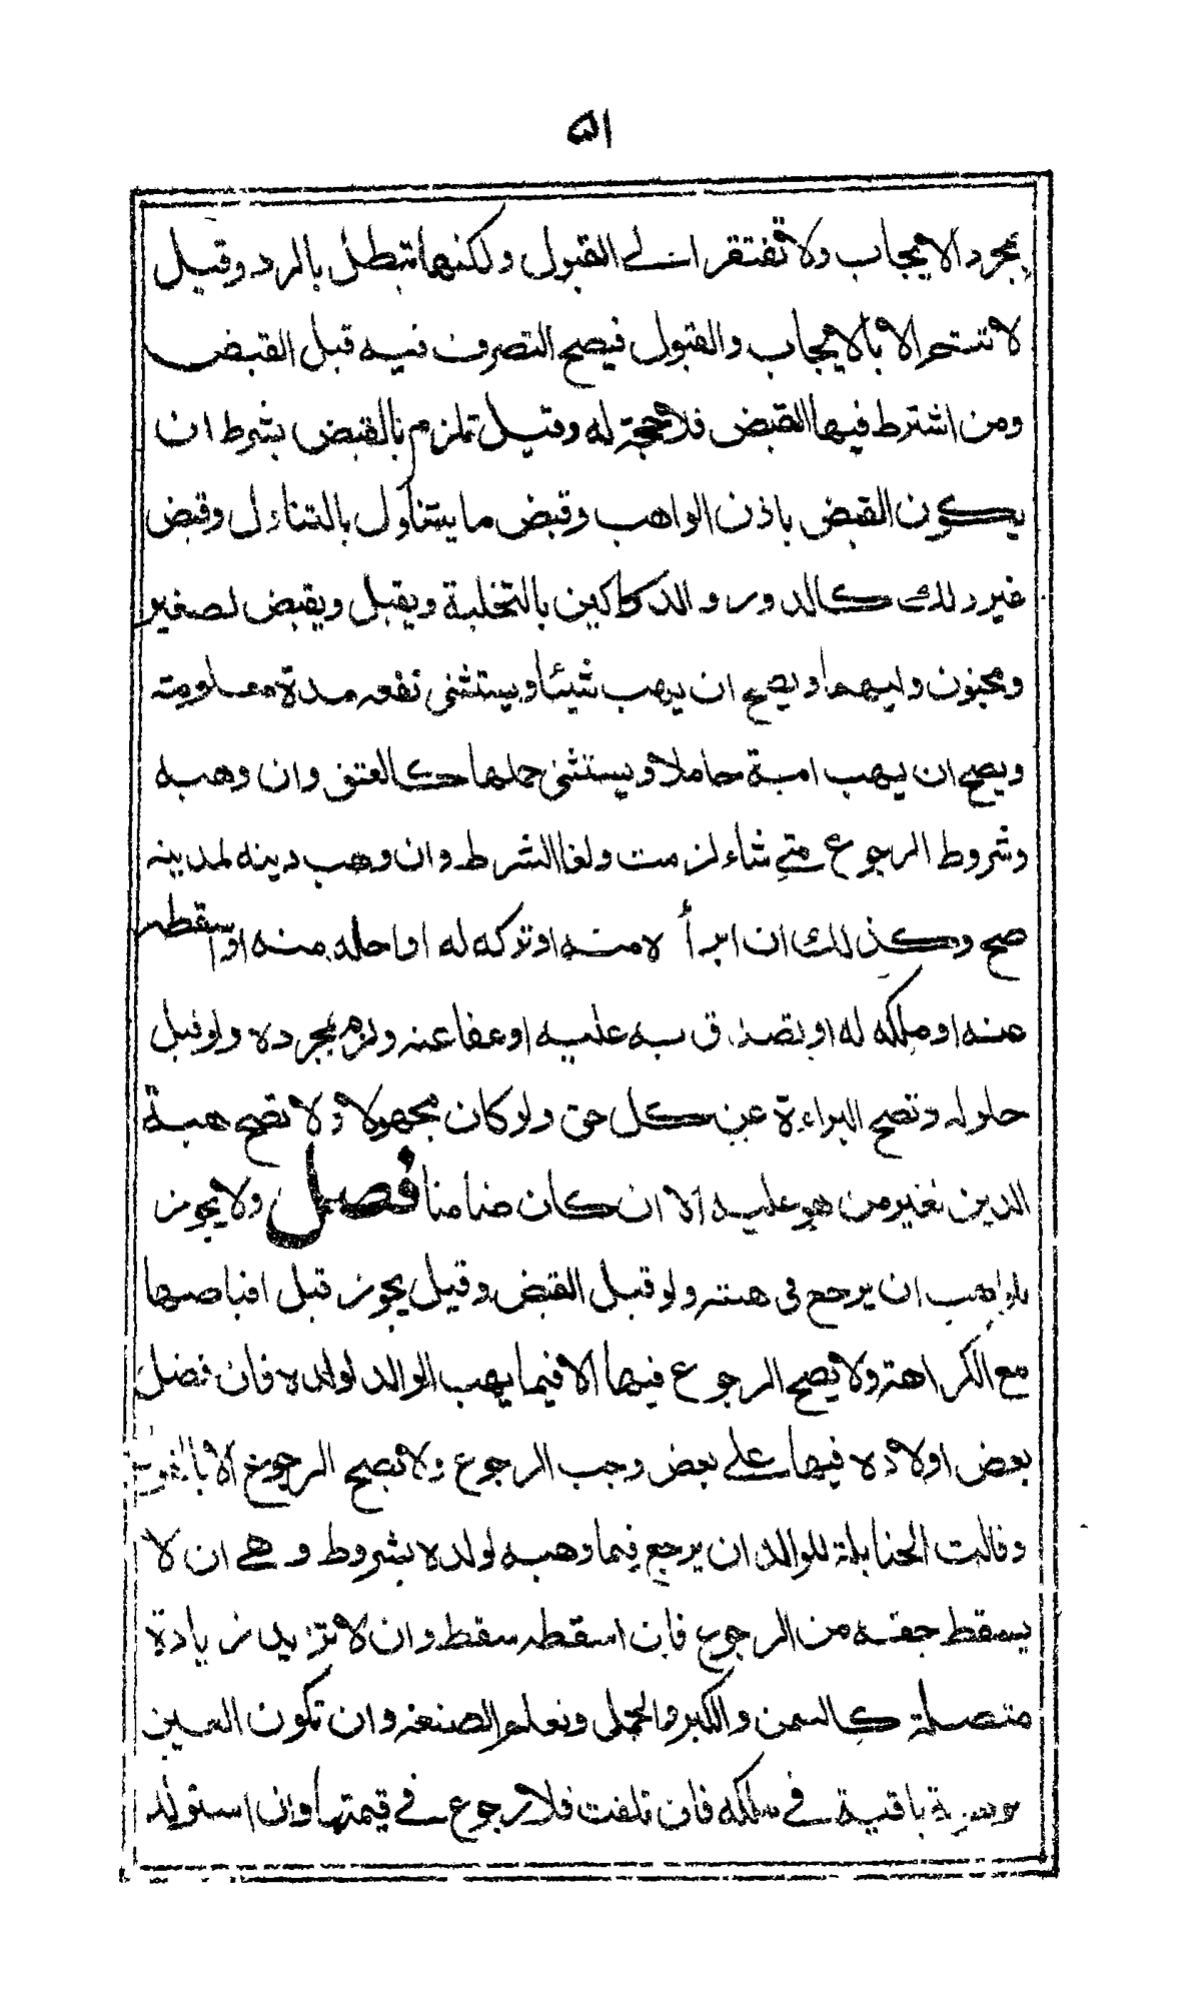 ٥١
بمجرد الايجاب ولا تفتقر الى القبول ولكنها تبطل بالرد وقيل
لا تتم الا بالايجاب والقبول فيصح التصرف فيه قبل القبض
ومن اشترط فيها القبض فلا حجة له وقيل تلزم بالقبض بشرط ان
يكون القبض باذن الواهب وقبض ما يتناول بالتناول وقبض
غير ذلك كالدور والدكاكين بالتخلية ويقبل ويقبض لصغير
ومجنون وليهما ويصح ان يهب شيئا ويستثنى نفعه مدة معلومة
ويصح ان يهب امة حاملا ويستثنى حملها كالعتق وان وهبه
وشروط الرجوع متى شاء لزمت ولغا الشرط وان وهب دينه لمدينه
صح وكذلك ان ابرأ ه منه او تركه له او احله منه او اسقطه
عنه او ملكه له او تصدق به عليه او عفا عنه ولزم بمجرده ولو قبل
حلوله وتصح البراءة عن كل حق ولو كان مجهولا ولا تصح هبة
الدين لغير من هو عليه الا ان كان ضامنا فصل ولا يجوز
للواهب ان يرجع فى هبته ولو قبل القبض وقيل يجوز قبل اقباضها
مع الكراهة ولا يصح الرجوع فيها الا فيما يهب الوالد لولده فان فضل
بعض اولاده فيها على بعض وجب الرجوع ولا تصح الرجوع الا بالقول
وقالت الحنابلة للوالد ان يرجع فيما وهبه لولده بشروط وهى ان لا
يسقط حقه من الرجوع فان اسقطه سقط وان لا تزيد زيادة
متصلة كالسمن والكبر والحمل وتعلم الصنعة وان تكون العين
باقية فى ملكه فان تلفت فلا رجوع فى قيمتها وان استولد